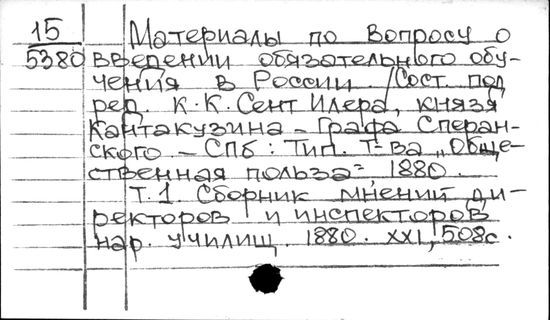 15 Материалы по вопросу о
5380 введении обязательного обу-
чения в России. /Сост. под
ред. К.К. Сент Илера, князя
Кантакузина - Графа Сперан-
ского. - СПб: Тип. Т-ва „Обще-
ственная польза" 1880.
Т.1. Сборник мнений ди-
ректоров и инспекторов
нар. училищ. 1880. XXI, 508с.